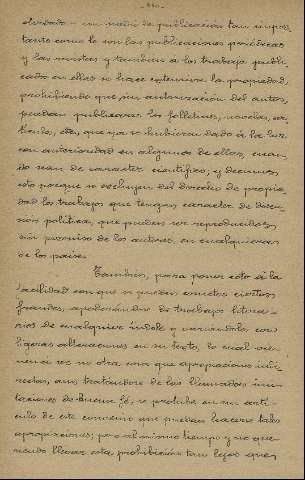 olvidado - un medio de publicación tan impor-
tante como lo son las publicaciones periódicas
y las revistas y tambien a los trabajos publi-
cados en ellas se hace extensiva la propiedad,
prohibiendo que, sin autorización del autor,
puedan publicarse los folletines, novelas, ar-
tículos, etc, que ya se hubieran dado á la luz
con anterioridad en algunos de ellos, cuan-
do sean de caracter científico, y decimos
esto porque se excluyen del derecho de propie-
dad los trabajos que tengan caracter de discu-
sión política, que pueden ser reproducidos,
sin permiso de los autores, en cualquiera
de los paises.
Tambien, para poner coto á la
facilidad con que se pueden cometer ciertos
fraudes, apoderándose de trabajos litera-
rios de cualquier índole y variándolos con
ligeras alteraciones en su texto, lo cual
no es otra cosa que apropiaciones indi-
rectas, aun tratándose de las llamadas imi-
taciones de buena fé, se prohibe en un artí-
culo de este convenio que puedan hacerse tales
apropiaciones; pero al mismo tiempo y no que-
riendo llevar esta prohibición tan lejos que,